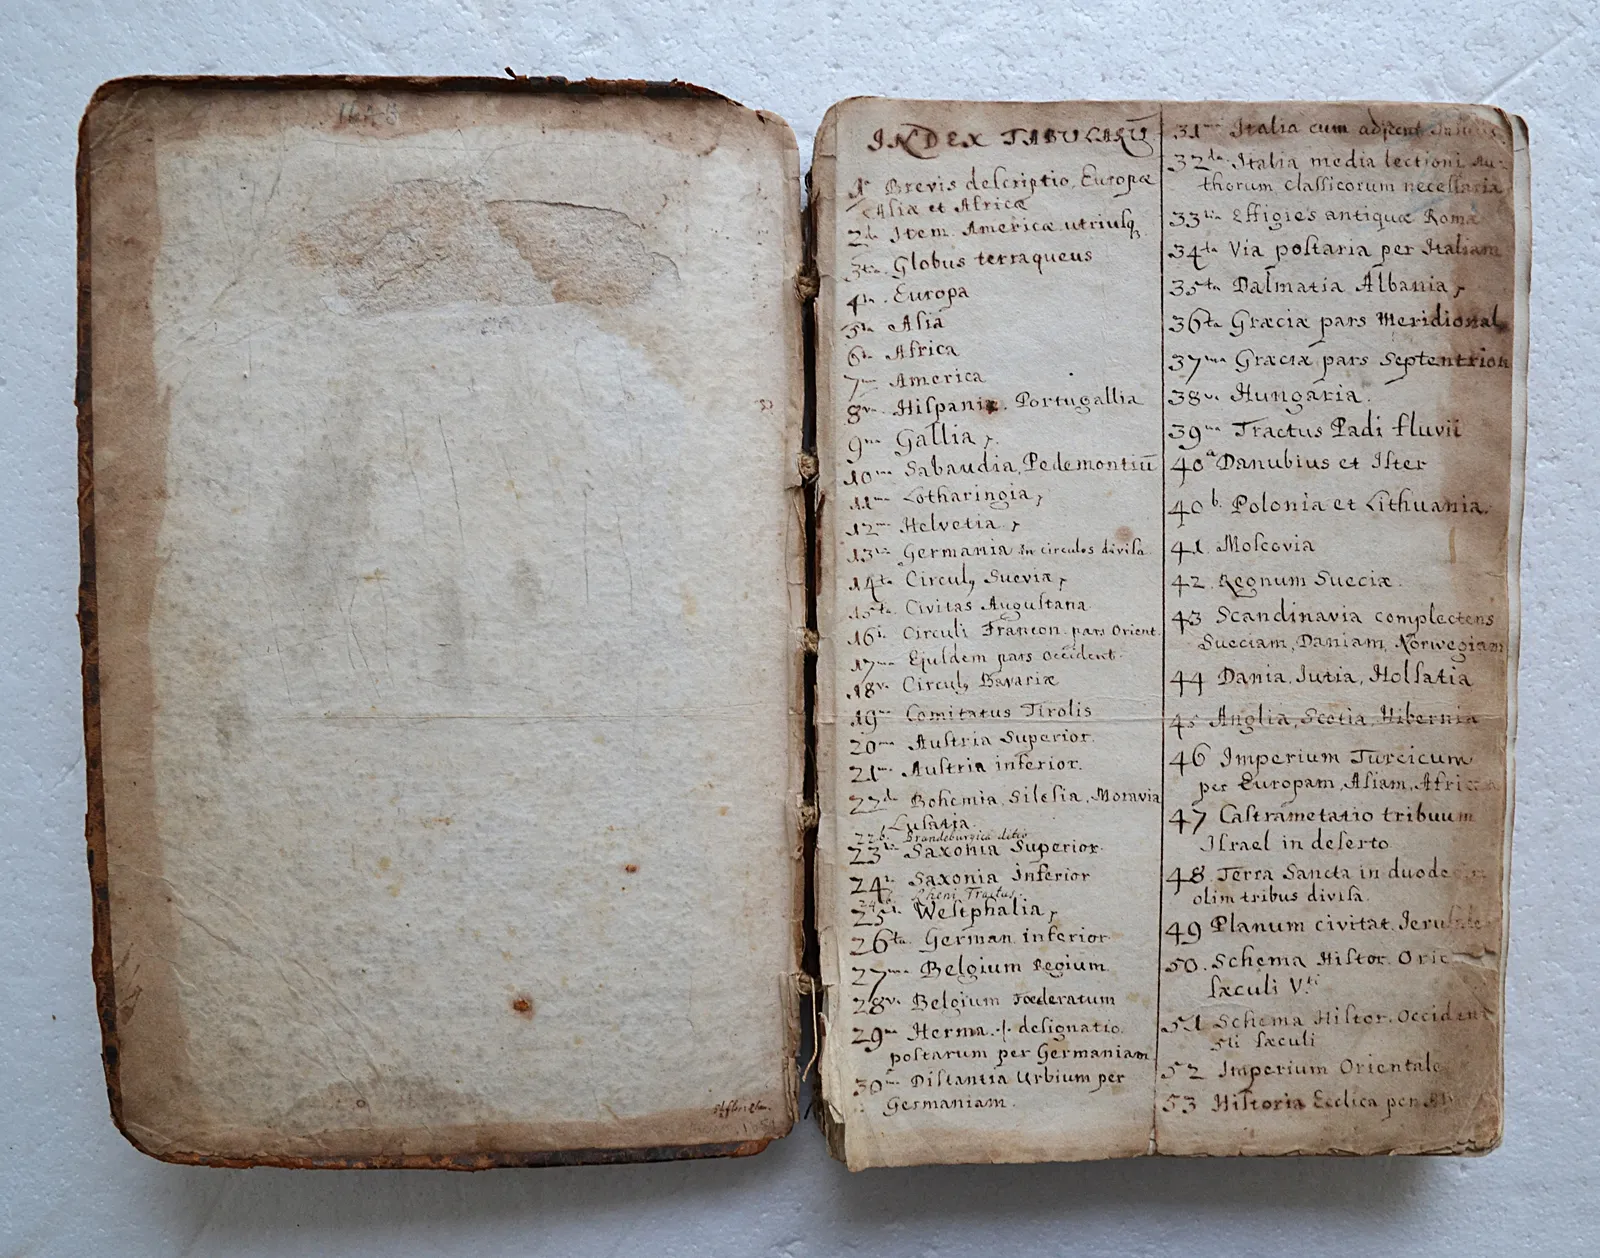 INDEX TABULARŪ
1ª Brevis descriptio Europæ
Asiæ et Africæ
2da Item Americæ utriusq
3tia Globus terraqueus
4ta Europa
5ta Asia
6ta Africa
7ma America
8va Hispania. Portugallia
9na Gallia
10ma Sabaudia, Pedemontiū
11ma Lotharingia
12ma Helvetia
13tia Germania in circulos divisa
14ta Circulq Sueviæ
15ta Civitas Augustana
16ta Circuli Francon. pars Orient.
17ma Ejusdem pars occident.
18va Circulq Bavariæ
19na Comitatus Tirolis
20ma Austria Superior.
21ma Austria inferior.
22da Bohemia, Silesia, Moravia
Lusatia.
22b. Brandeburgica ditio
23tia Saxonia Superior.
24ta Saxonia Inferior
24b. Rheni Tractus.
25ta Westphalia
26ta German. inferior
27ma Belgium Regium
28va Belgium Fœderatum
29na Herma. designatio
postarum per Germaniam
30ma Distantia Urbium per
Germaniam.
31ma Italia cum adjacent
32da Italia media lectioni Au-
thorum classicorum necessaria
33tia Effigies antiquæ Romæ
34ta Via postaria per Italiam
35ta Dalmatia Albania
36ta Græciæ pars Meridional
37ma Græciæ pars Septentrion
38va Hungaria.
39na Tractus Padi fluvii
40a Danubius et Ister
40b. Polonia et Lithuania.
41. Moscovia
42. Regnum Sueciæ.
43 Scandinavia complectens
Sueciam, Daniam, Norwegiam
44 Dania, Jutia, Holsatia
45 Anglia, Scotia, Hibernia
46 Imperium Turcicum
per Europam, Asiam, Africa
47 Castrametatio tribuum
Israel in deserto
48. Terra Sancta in duode
olim tribus divisa.
49 Planum civitat. Jerusale
50. Schema Histor. Orie
sæculi V.ti
51 Schema Histor. Occident
5ti sæculi
52 Imperium Orientale
53 Historia Ecclica per